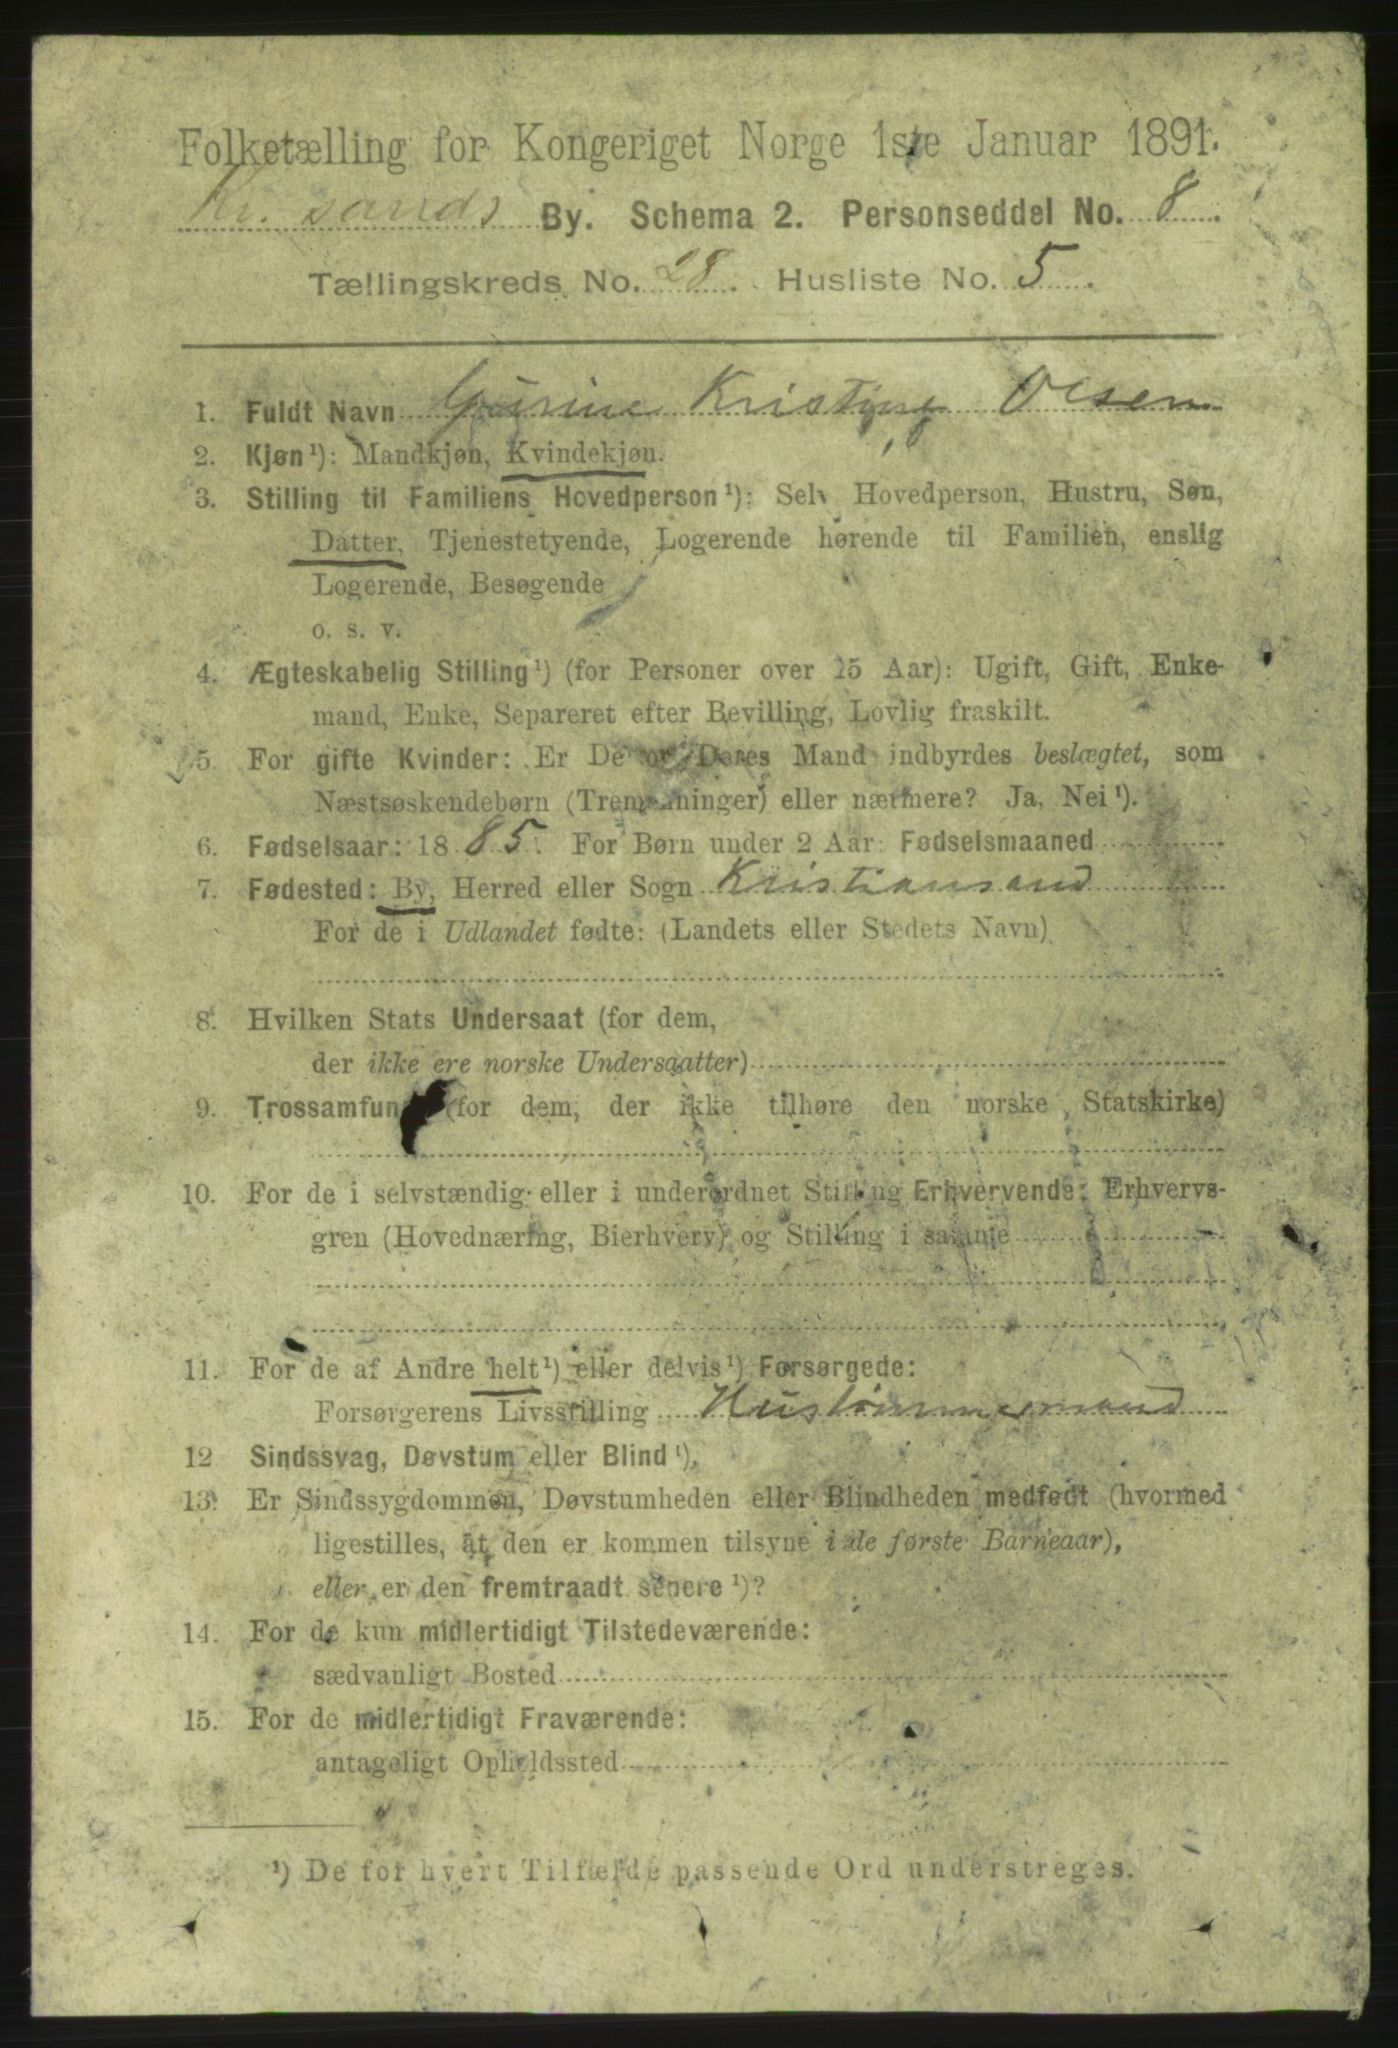 Folketælling for Kongeriget Norge 1ste Januar 1891.
Kr. sands By. Schema 2. Personseddel No. 8.
Tællingskreds No. 28. Husliste No. 5.
1. Fuldt Navn Gurine Kristine Olsen
2. Kjøn¹): Mandkjøn, Kvindekjøn.
3. Stilling til Familiens Hovedperson¹): Selv Hovedperson, Hustru, Søn,
Datter, Tjenestetyende, Logerende hørende til Familien, enslig
Logerende, Besøgende
o. s. v.
4. Ægteskabelig Stilling¹) (for Personer over 15 Aar): Ugift, Gift, Enke-
mand, Enke, Separeret efter Bevilling, Lovlig fraskilt.
5. For gifte Kvinder: Er De og Deres Mand indbyrdes beslægtet, som
Næstsøskendebørn (Tremenninger) eller nærmere? Ja, Nei¹).
6. Fødselsaar: 1885. For Børn under 2 Aar: Fødselsmaaned
7. Fødested: By, Herred eller Sogn Kristiansand
For de i Udlandet fødte: (Landets eller Stedets Navn)
8. Hvilken Stats Undersaat (for dem,
der ikke ere norske Undersaatter)
9. Trossamfund (for dem, der ikke tilhøre den norske Statskirke)
10. For de i selvstændig eller i underordnet Stilling Erhvervende: Erhvervs-
gren (Hovednæring, Bierhverv) og Stilling i samme
11. For de af Andre helt¹) eller delvis¹) Forsørgede:
Forsørgerens Livsstilling Hustømmermand
12 Sindssvag, Døvstum eller Blind¹).
13. Er Sindssygdommen, Døvstumheden eller Blindheden medfødt (hvormed
ligestilles, at den er kommen tilsyne i de første Barneaar),
eller er den fremtraadt senere¹)?
14. For de kun midlertidigt Tilstedeværende:
sædvanligt Bosted
15. For de midlertidigt Fraværende:
antageligt Opholdssted
¹) De for hvert Tilfælde passende Ord understreges.